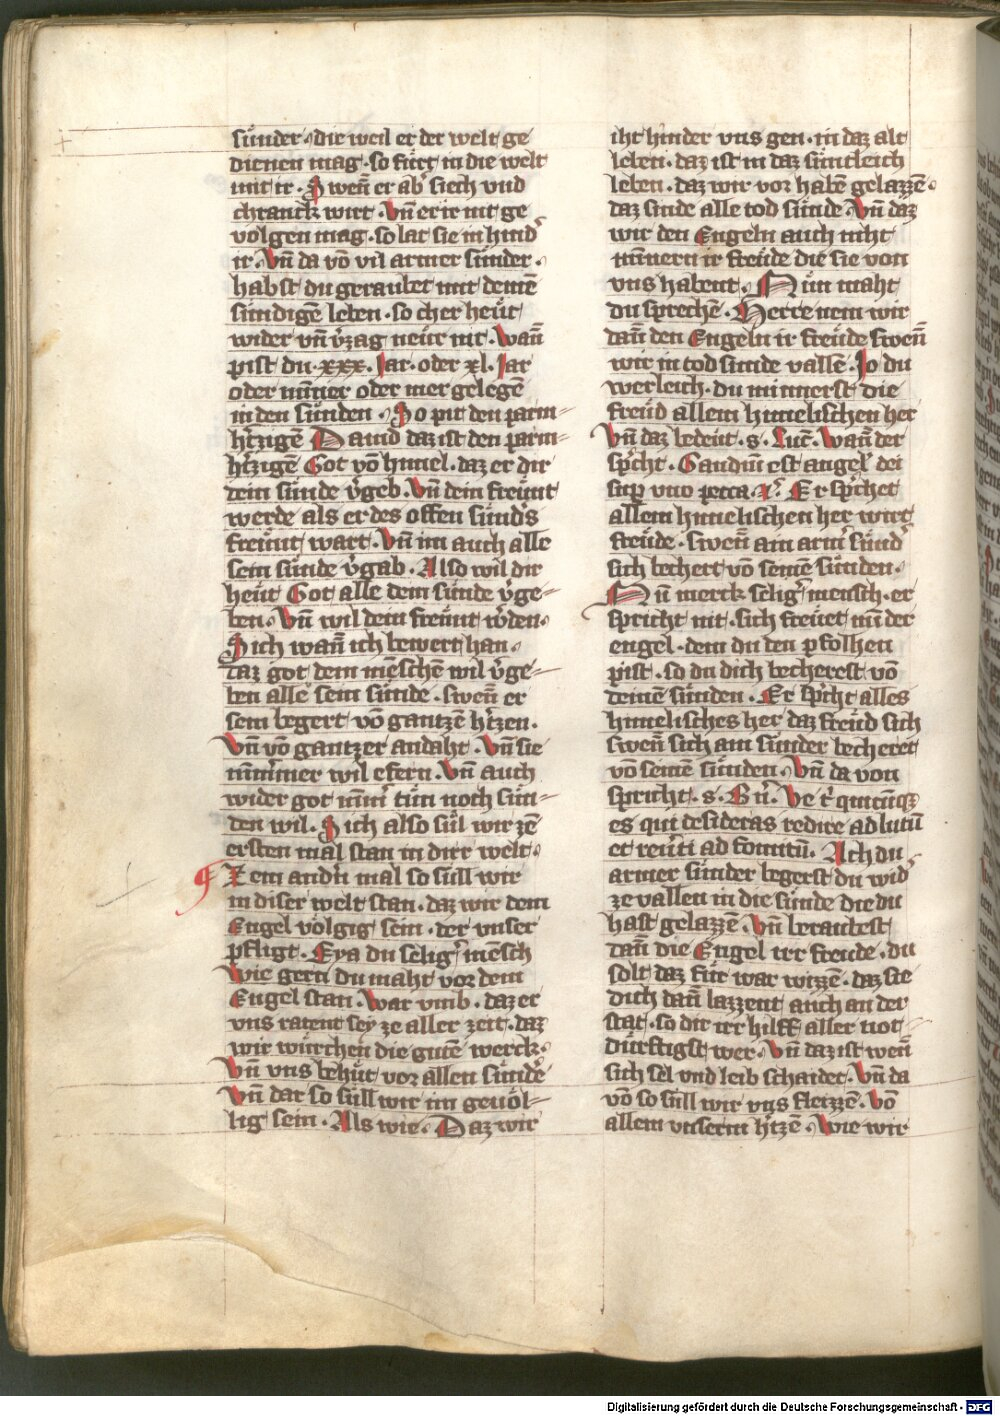 sünder · die weil er der welt ge
dienen mag · so fürt in die welt
mit ir · Swen̄ er ab siech vnd
chranck wirt · Vn̄ er ir nit ge
volgen mag · so lat sie in hind
ir · Vn̄ da vō vil armer sünder ·
habst du geraubet mit deinē
sündigē leben · so cher heüt
wider vn̄ v̓zag neür nit · Wan̄
pist du xxx · Jar · oder xl · Jar
oder minner oder mer gelegē
in den sünden · So pit den parm-
h̓tzigē Dauid daz ist den parm-
h̓tzigē Got vō himel · daz er dir
dein sünde v̓geb · Vn̄ dein freünt
werde als er des offen sünd̓s
freünt wart · Vn̄ im auch alle
sein sünde v̓gab · Also wil dir
heüt Got alle dein sünde v̓ge-
ben · Vn̄ wil dein freünt w̓den ·
Sich wan̄ ich bewert han ·
daz got dem mēschē wil v̓ge-
ben alle sein sünde · swen̄ er
sein begert vō gantzē h̓tzen ·
Vn̄ vō gantzer andaht · Vn̄ sie
nim̄mer wil efern · Vn̄ auch
wider got nim̄ tün noch sün-
den wil · Sich also sül wir zē
ersten mal stan in dirr welt ·
Zem and̓n mal so süll wir
in diser welt stan · daz wir dem
Engel völgig sein · der vnser
pfligt · Eya du selig̓ mēsch
wie gern du maht vor dem
Engel stan · War vmb · daz er
vns ratent sey ze aller zeit · daz
wir würchen die gutē werck ·
Vn̄ vns behüt vor allen sündē
Vn̄ dar so süll wir im geuöl-
lig sein · Als wie · Daz wir
iht hinder vns gen · in daz alt
leben · daz ist in daz süntleich
leben · daz wir vor habē gelazzē ·
daz sinde alle tod sünde · Vn̄ daz
wir den Engeln auch niht
minnern ir freüde die sie von
vns habent · Nün maht
du sprechē · Herre nem wir
dan̄ den Engeln ir freüde swen̄
wir in tod sünde vallē · Jo du
werleich · du minnerst die
freüd allem himelischen her
Vn̄ daz bedeüt · s · Luc̄ · Wan̄ der
sp̓cht · Gaudiū est angel̓ dei
sup vno pecca · Er sp̓chet
allem himelischen her wirt
freüde · swen̄ ain arm̓ sünd̓
sich bechert vō seinē sünden ·
Nu merck selig̓ mensch · er
spricht nit · sich freüet nūr der
engel · dem du den pfolhen
pist · so du dich becherest vō
deinē sünden · Er sp̓cht alles
himelisches her daz freüd sich
swen̄ sich ain sünder becheret
vō seinē sünden · Vn̄ da von
spricht · s · B̓n̓ · Ve t̓ quicūqꝫ
es qui desideras redire ad lutū
et reu̓ti ad fomitū · Ach du
armer sünder begerst du wid̓
ze vallen in die sünde die du
hast gelazzē · Vn̄ beraubest
dan̄ die Engel irr freude · du
solt daz für war wizzē · daz sie
dich dan̄ lazzent auch an der
stat · so dir irr hilff aller not-
dürftigst wer · Vn̄ daz ist wen̄
sich sel vnd leib schaidet · Vn̄ da
vō so süll wir vns fleizzē · Vō
allem vnserm h̓tzē · Wie wir
Digitalisierung gefördert durch die Deutsche Forschungsgemeinschaft · DFG